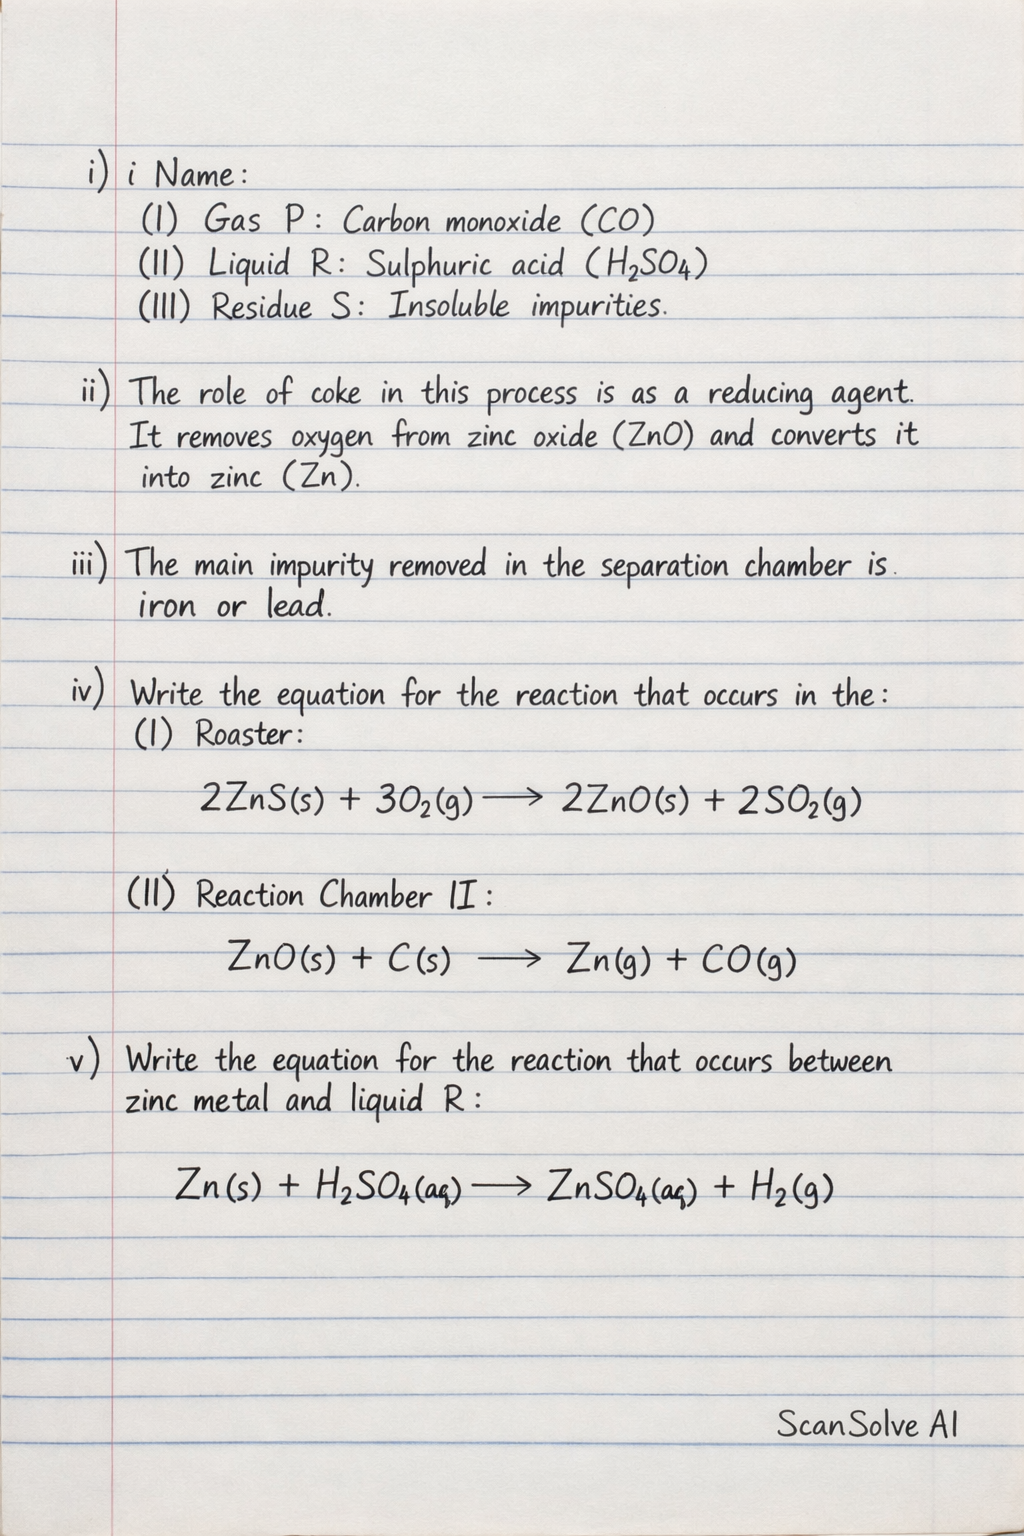 i) i Name:
(I) Gas P: Carbon monoxide (CO)
(II) Liquid R: Sulphuric acid (H₂SO₄)
(III) Residue S: Insoluble impurities.
ii) The role of coke in this process is as a reducing agent.
It removes oxygen from zinc oxide (ZnO) and converts it
into zinc (Zn).
iii) The main impurity removed in the separation chamber is.
iron or lead.
iv) Write the equation for the reaction that occurs in the:
(I) Roaster:
2ZnS(s) + 3O₂(g) ⟶ 2ZnO(s) + 2SO₂(g)
(II) Reaction Chamber II:
ZnO(s) + C(s) ⟶ Zn(g) + CO(g)
v) Write the equation for the reaction that occurs between
zinc metal and liquid R:
Zn(s) + H₂SO₄(aq) ⟶ ZnSO₄(aq) + H₂(g)
ScanSolve AI